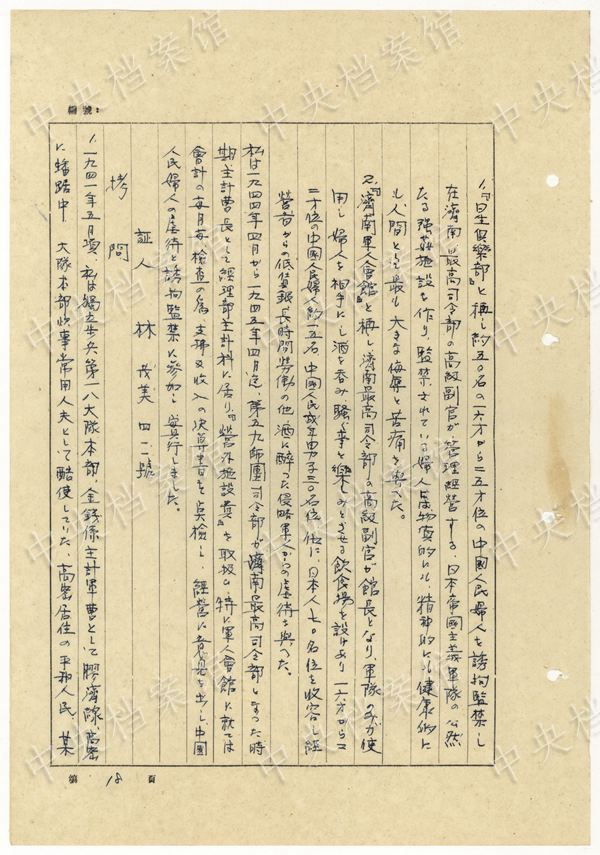 編號：
1.『日生俱樂部』と稱し約五〇名の一六才から二五才位の中國人民婦人を誘拐監禁し
在濟南最高司令部の高級副官が管理經營する、日本帝國主義軍隊の公然
たる強姦施設を作り、監禁されている婦人に物質的にも、精神的にも健康的に
も人間として最も大きな侮辱と苦痛を與へた。
2.『濟南軍人會館』と稱し濟南最高司令部の高級副官が館長となり、軍隊のみが使
用し婦人を相手にし酒を呑み騒ぐ事を樂しみとさせる飲食場を設けあり一六才から二
二才位の中國人民婦人約一五名 中國人民成年男子三〇名位 他に、日本人七〇名位を收容し經
營者からの低賃銀長時間勞働の他 酒に醉った侵略軍人からの虐待を與へた。
私は一九四四年四月から一九四五年四月迄、第五九師團司令部が濟南最高司令部となった時
期主計曹長として經理部主計科に居り、『營外施設費』を取扱い 特に軍人會館に就ては
會計の毎月毎檢查の為 支拂及收入の決算書を点檢し、經營に意見を出し、中國
人民婦人の虐待と誘拐監禁に参加し實行しました。
証人 林 茂美 四二號
拷問
1.一九四一年五月頃、私は獨立步兵第一八大隊本部、金錢係主計軍曹として膠濟線、高密
に蟠踞中 大隊本部炊事常用人夫として酷使していた、高密居住の平和人民、某
第 18 頁
中央档案馆
中央档案馆
中央档案馆
中央档案馆
中央档案馆
中央档案馆